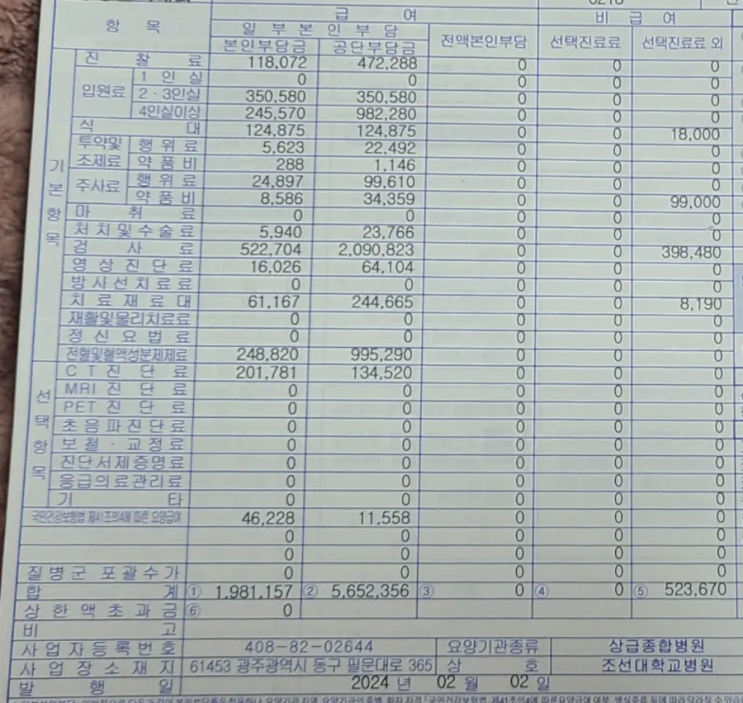 급 여 비 급 여
항 목 일 부 본 인 부 담 전액본인부담 선택진료료 선택진료료 외
본인부담금 공단부담금
기본항목
진 찰 료 118,072 472,288 0 0 0
입원료 1 인 실 0 0 0 0 0
2·3인실 350,580 350,580 0 0 0
4인실이상 245,570 982,280 0 0 0
식 대 124,875 124,875 0 0 18,000
투약및 조제료 행 위 료 5,623 22,492 0 0 0
약 품 비 288 1,146 0 0 0
주사료 행 위 료 24,897 99,610 0 0 0
약 품 비 8,586 34,359 0 0 99,000
마 취 료 0 0 0 0 0
처치및수술료 5,940 23,766 0 0 0
검 사 료 522,704 2,090,823 0 0 398,480
영상진단료 16,026 64,104 0 0 0
방사선치료료 0 0 0 0 0
치료재료대 61,167 244,665 0 0 8,190
재활및물리치료료 0 0 0 0 0
정신요법료 0 0 0 0 0
전혈및혈액성분제제료 248,820 995,290 0 0 0
선택항목
C T 진 단 료 201,781 134,520 0 0 0
MRI 진 단 료 0 0 0 0 0
PET 진 단 료 0 0 0 0 0
초음파진단료 0 0 0 0 0
보철·교정료 0 0 0 0 0
진단서제증명료 0 0 0 0 0
응급의료관리료 0 0 0 0 0
기 타 0 0 0 0 0
국민건강보험법 제41조의4에 따른 요양급여 46,228 11,558 0 0 0
0 0 0 0 0
0 0 0 0 0
질병군 포괄수가 0 0 0 0 0
합 계 ① 1,981,157 ② 5,652,356 ③ 0 ④ 0 ⑤ 523,670
상한액초과금 ⑥ 0
비 고
사업자등록번호 408-82-02644 요양기관종류 상급종합병원
사업장소재지 61453 광주광역시 동구 필문대로 365 상 호 조선대학교병원
발 행 일 2024 년 02 월 02 일